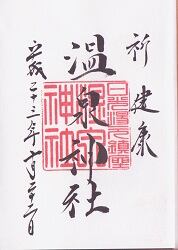 祈 健康
日光湯元鎮座
温泉神社
温泉神社
平成二十三年十月二十二日